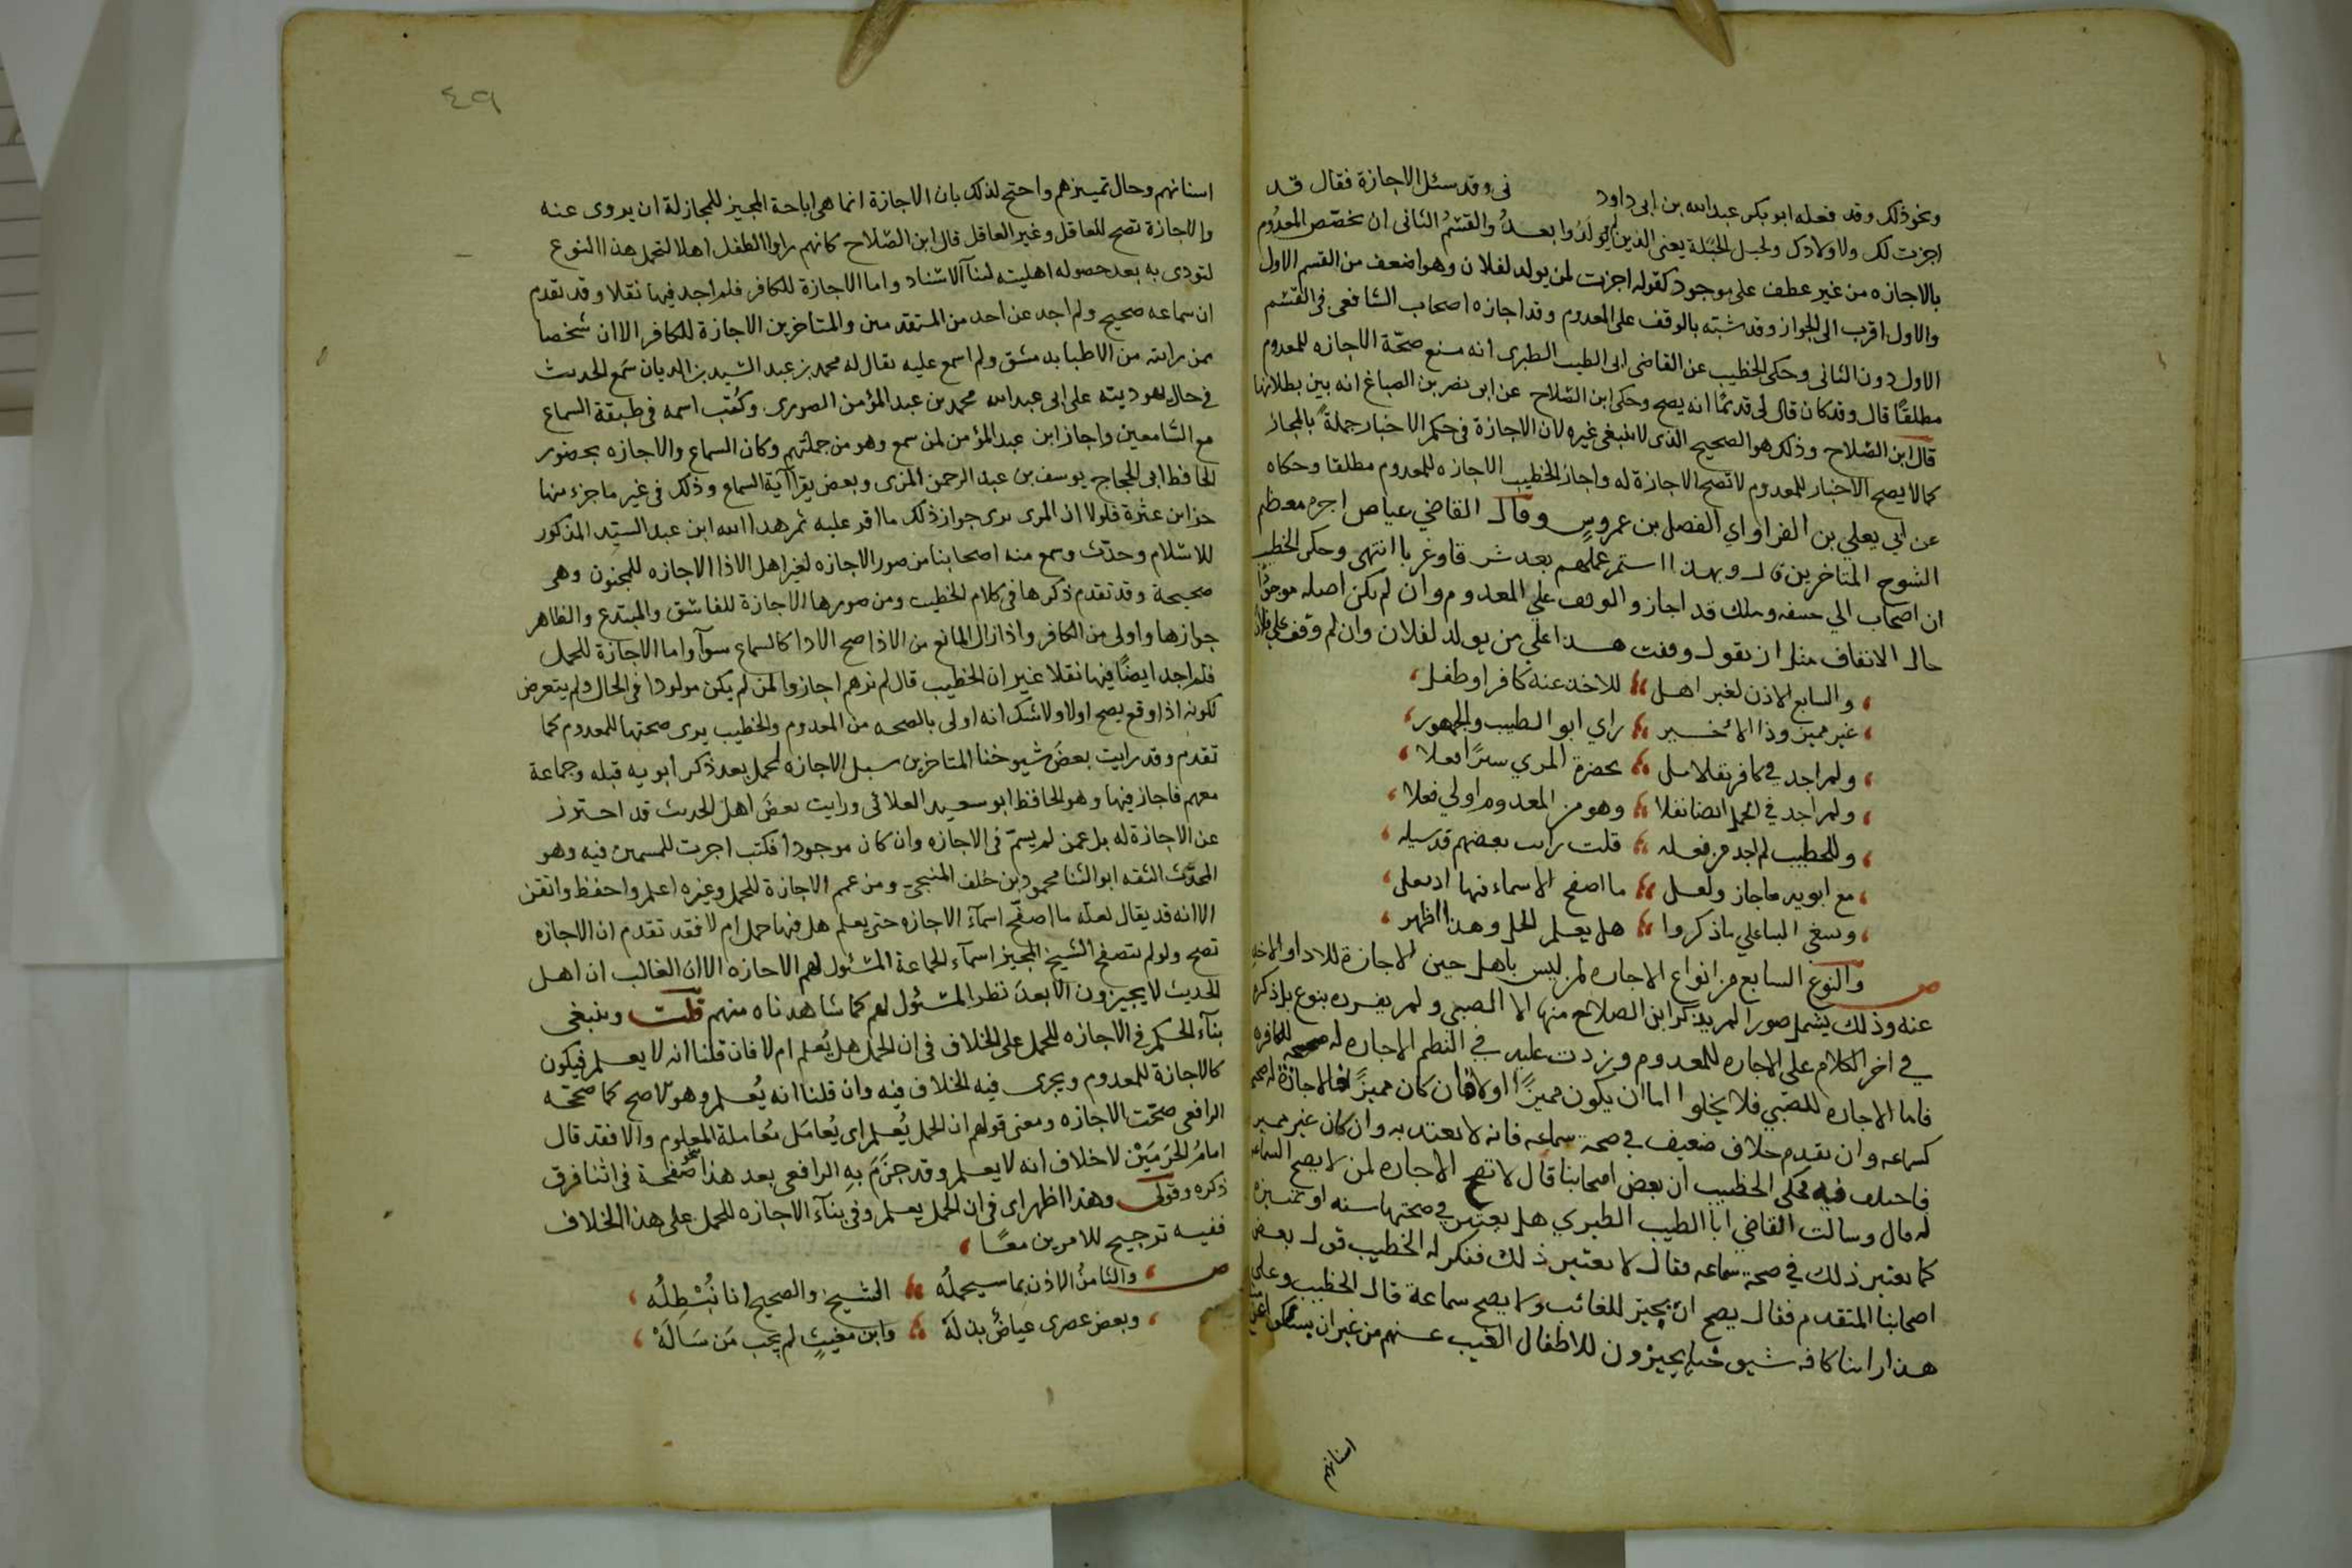 ونحو ذلك وقد فعله ابو بكر عبد الله بن ابى داود فى وقد سئل الاجازة فقال قد
اجزت لك ولاولادك ولحبل الحبلة يعنى الذين لم يولدوا بعد والقسم الثانى ان يخصص المعدوم
بالاجازه من غير عطف على موجود كقوله اجزت لمن يولد لفلان وهو اضعف من القسم الاول
والاول اقرب الى الجواز وقد شبّه بالوقف على المعدوم وقد اجازه اصحاب الشافعى فى القسم
الاول دون الثانى وحكى الخطيب عن القاضى ابى الطيب الطبرى انه منع صحّة الاجازه للمعدوم
مطلقًا قال وقد كان قال لى قديمًا انه يصح وحكى ابن الصّلاح عن ابى نصر بن الصباغ انه بين بطلانها
قال ابن الصّلاح وذلك هو الصحيح الذى لا ينبغى غيره لان الاجازة فى حكم الاخبار جملةً بالمجاز
كما لا يصح الاخبار للمعدوم لا تصح الاجازة له واجاز الخطيب الاجازه للمعدوم مطلقا وحكاه
عن ابي يعلي بن الفرا وابي الفضل بن عمروس وقال القاضي عياض اجازه معظم
الشيوخ المتاخرين قال وبهذا استمر عملهم بعد شرقا وغربا انتهى وحكى الخطيب
ان اصحاب ابي حنيفه ومالك قد اجازوا الوقف علي المعدوم وان لم يكن اصله موجودًا
حال الايقاف مثل ان يقول وقفت هذا علي من يولد لفلان وان لم وقف علي فلان
والسابع الاذن لغير اهل للاخذ عنه كافر او طفل
غير مميز وذا الاخير راي ابو الطيب والجمهور
ولم اجد في كافر نقلا بلى بحضرة المزي تترًا فعلا
ولم اجد في الحمل ايضا نقلا وهو من المعدوم اولي فعلا
وللخطيب لم اجد من فعله قلت رايت بعضهم قد سيله
مع ابويه فاجاز ولعل ما اصفح الاسماء فيها اذ فعل
وينبغي البنا علي ما ذكروا هل يعلم الحمل وهذا اظهر
ص والنوع السابع من انواع الاجازه لمن ليس باهل حين الاجازة للادا والاخذ
عنه وذلك يشمل صورا لم يذكر ابن الصلاح منها الا الصبي ولم يفرده بنوع بل ذكره
في اخر الكلام على الاجازه للمعدوم وزدت عليه في النظم الاجازه للكافر
فاما الاجازه للصّبي فلا يخلوا اما ان يكون مميزًا اولا فان كان مميزًا فالاجازة له صحيحة
كسماعه وان تقدم خلاف ضعيف في صحة سماعه فانه لا يعتد به وان كان غير مميز
فاختلف فيه فحكى الخطيب ان بعض اصحابنا قال لا تصح الاجازه لمن لا يصح السماع
له قال وسالت القاضي ابا الطيب الطبري هل يعتبر في صحتها سنه او تمييزه
كما يعتبر ذلك في صحة سماعه فقال لا يعتبر ذلك فذكر له الخطيب قول بعض
اصحابنا المتقدم فقال يصح ان يجيز للغائب ولا يصح سماعة قال الخطيب وعلى
هذا راينا كافه شيوخنا يجيزون للاطفال الغيب عنهم من غير ان يسالوا عن
٤٩
اسنانهم وحال تمييزهم واحتج لذلك بان الاجازة انما هى اباحة المجيز للمجاز له ان يروى عنه
والاجازة تصح للعاقل وغير العاقل قال ابن الصّلاح كانهم راوا الطفل اهلا لتحمل هذا النوع
لتودى به بعد حصوله اهليته لبقآ الاسناد واما الاجازة للكافر فلم اجد فيها نقلا وقد تقدم
ان سماعه صحيح ولم اجد عن احد من المتقدمين والمتاخرين الاجازة للكافر الا ان شخصا
ممن رايته من الاطبا بدمشق ولم اسمع عليه يقال له محمد بن عبد السّيد بن الديان سَمع الحديث
فى حال يهوديته على ابى عبد الله محمد بن عبد المؤمن الصورى وكُتب اسمه فى طبقة السماع
مع السّامعين واجاز ابن عبد المؤمن لمن سمع وهو من جملتهم وكان السماع والاجازه بحضور
الحافظ ابى الحجاج يوسف بن عبد الرحمن المزى وبعض يقرا آية السماع وذلك فى غير ما جزء منها
جزء ابن عثرة فلولا ان المزى يرى جواز ذلك ما اقر عليه ثم هدا الله ابن عبد السيّد المذكور
للاسلام وحدّث وسمع منه اصحابنا من صور الاجازه لغير اهل الاذا الاجازه للمجنون وهى
صحيحة وقد تقدم ذكرها فى كلام الخطيب ومن صورها الاجازة للفاسق والمبتدع والظاهر
جوازها واولى من الكافر واذا زال المانع من الاذا صح الادا كالسماع سوآ واما الاجازة للحمل
فلم اجد ايضًا فيها نقلا غير ان الخطيب قال لم نرهم اجازوا لمن لم يكن مولودا فى الحال ولم يتعرض
لكونه اذا وقع يصح اولا ولا شك انه اولى بالصحه من المعدوم والخطيب يرى صحتها للمعدوم كما
تقدم وقد رايت بعضَ شيوخنا المتاخرين سيل الاجازه لحمل بعد ذكر ابويه قبله وجماعة
معهم فاجاز فيها وهو الحافظ ابو سعيد العلائى ورايت بعضَ اهل الحديث قد احترز
عن الاجازة له بل عمن لم يسمّ فى الاجازه وان كان موجودا فكتب اجزت للمسمين فيه وهو
المحدّث الثقه ابو الثنا محمود بن خلف المنبجى ومن عمم الاجازة للحمل وغيره اعلم واحفظ واتقن
الا انه قد يقال لعله ما اصفّح اسمآء الاجازه حتى يعلم هل فيها حمل ام لا فقد تقدم ان الاجازه
تصح ولو لم يتصفح الشيخ المجيز اسمآء الجماعة المسئول لهم الاجازه الا ان الغالب ان اهل
الحديث لا يجيزون الا بعدَ نظر المسئول لهم كما شاهدناه منهم قلت وينبغى
بنآء الحكم فى الاجازه للحمل على الخلاف فى ان الحمل هل يُعلم ام لا فان قلنا انه لا يعلم فيكون
كالاجازة للمعدوم ويجرى فيه الخلاف فيه وان قلنا انه يُعلم وهو الاصح كما صححه
الرافعى صحّت الاجازه ومعنى قولهم ان الحمل يُعلم اى يُعامَل مُعاملة المعلوم والا فقد قال
امامُ الحَرَمَيْن لا خلاف انه لا يعلم وقد جَزَمَ بهِ الرافعى بعد هذا بنحو صَفحة فى اثنا فرق
ذكره وقولى وهذا اظهر اى فى ان الحمل يعلم وفى بنآء الاجازه للحمل على هذا الخلاف
ففيه ترجيح للامرين معًا
ص والثامنُ الاذن بما سيحملُه الشيخ والصحيح انا نُبْطِلُه
وبعض عصرى عياضٌ بذلَهْ وابن مغيثٍ لم يجب مَن سَالَهْ